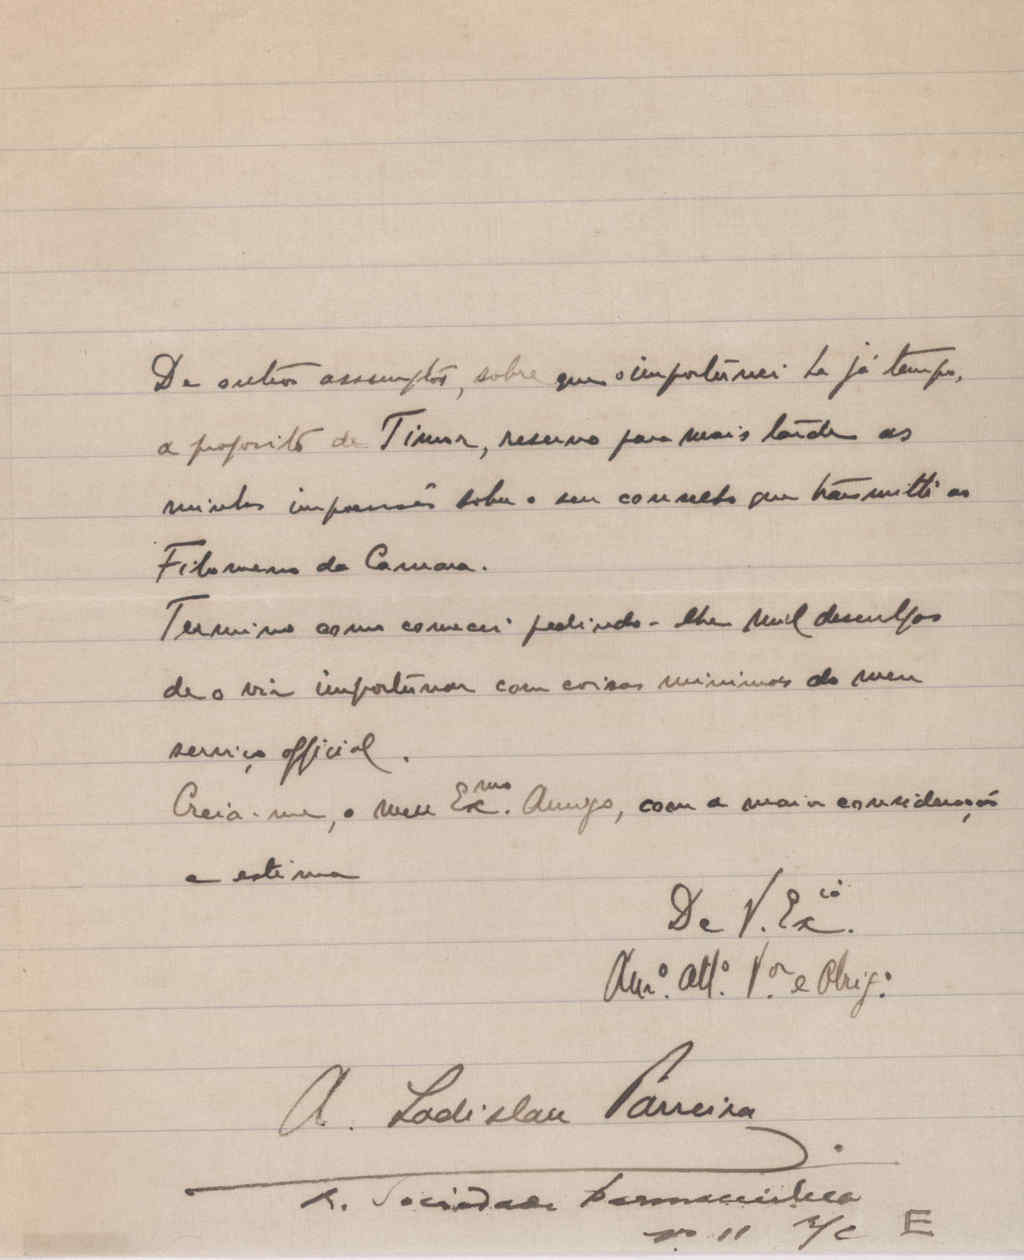 De outros assumptos, sobre que o importunei ha já tempo,
a proposito de Timor, reservo para mais tarde as
minhas impressões sobre o seu que transmitti ao
Filomeno da Camara.
Termino como comecei pedindo-lhe mil desculpas
de o vir importunar com coisas minimas do meu
serviço official.
Creia-me, o meu Exmo. Amigo, com a maior consideração
e estima
De V. Excia.
Am.º att.º V.or e Obrig.º
A. Ladislau Parreira
R. Sociedade Farmaceutica
nº 11 r/c E